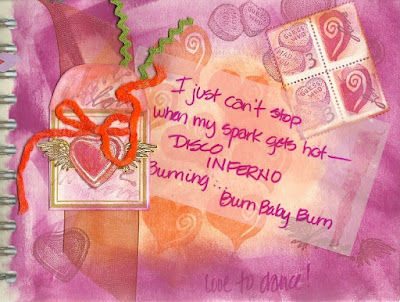 I just can't stop
when my spark gets hot—
DISCO
INFERNO
Burning...
Burn Baby Burn
love to dance!